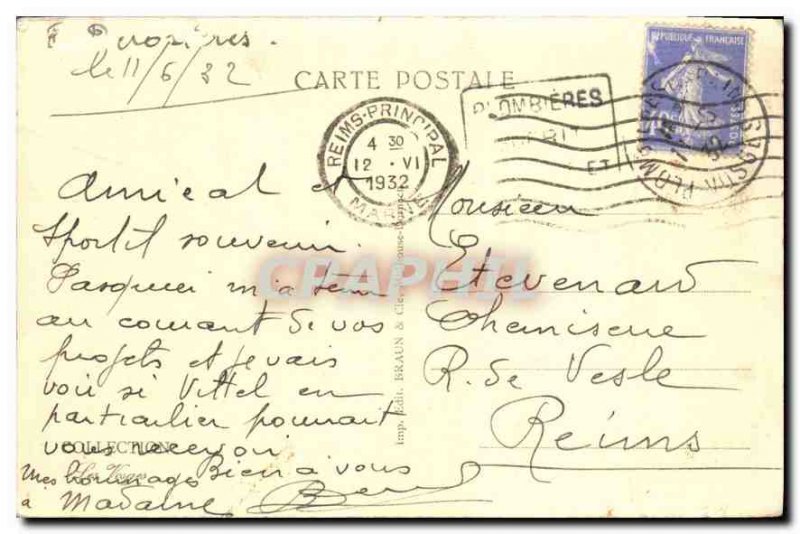 le 11/6/32
CARTE POSTALE
REPUBLIQUE FRANÇAISE
POSTES
PLOMBIÈRES
ET
PLOMBIERES
VOSGES
REIMS-PRINCIPAL
4 30
12 · VI
1932
MARNE
Amical et
Sportif souvenir.
Pasquier m'a tenu
au courant de vos
projets et je vais
voir si Vittel en
particulier pourrait
vous recevoir
Bien à vous
Mes hommages
à Madame
Monsieur
Etevenard
Chemiserie
R. de Vesle
Reims
Imp. Edit. BRAUN & Cie
COLLECTION
Les Vosges
CPAPHIL